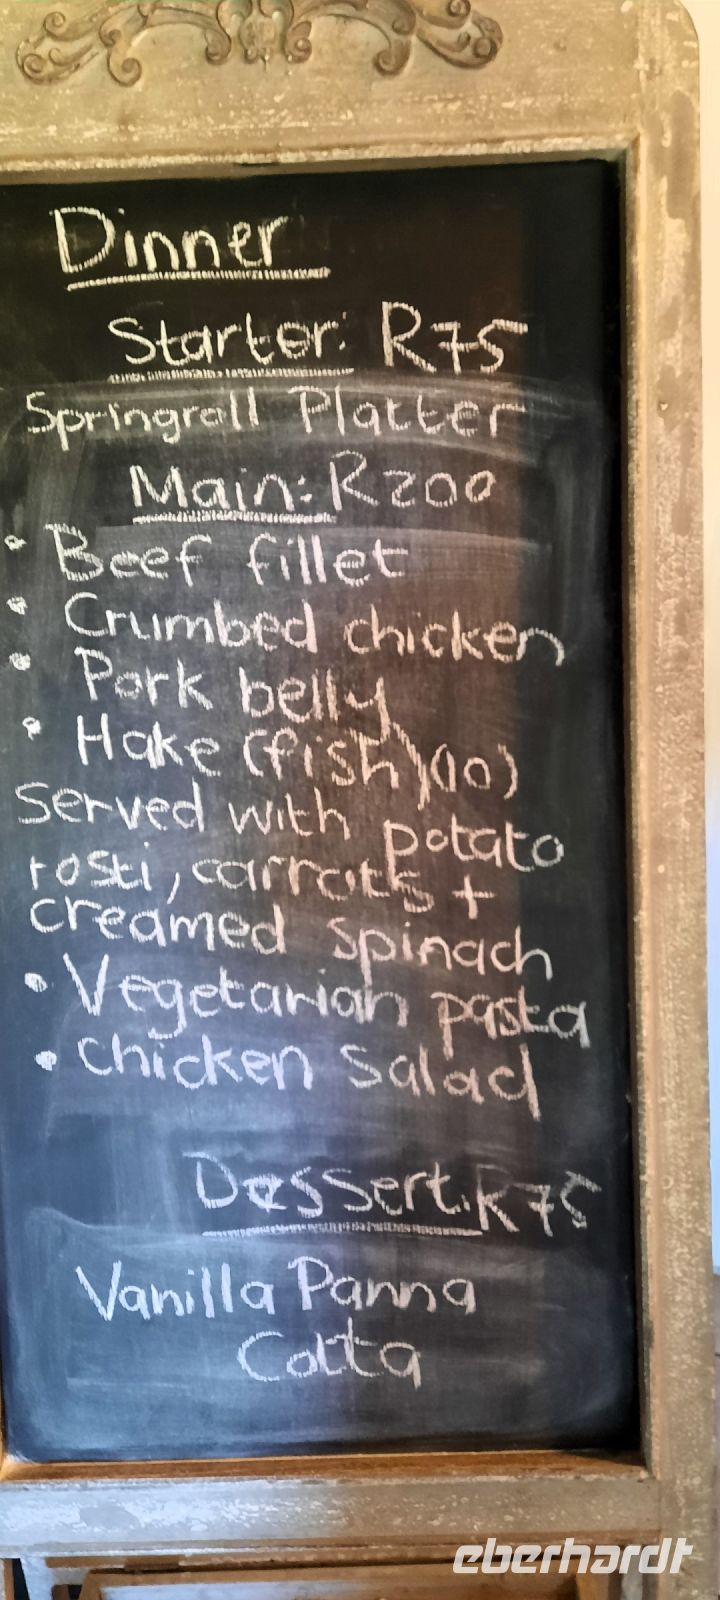 Dinner
Starter: R75
Springroll Platter
Main: R200
• Beef fillet
• Crumbed chicken
• Pork belly
• Hake (fish)(10)
served with potato
rosti, carrots +
creamed spinach
• Vegetarian pasta
• Chicken Salad
Dessert: R75
Vanilla Panna
Cotta
eberhardt